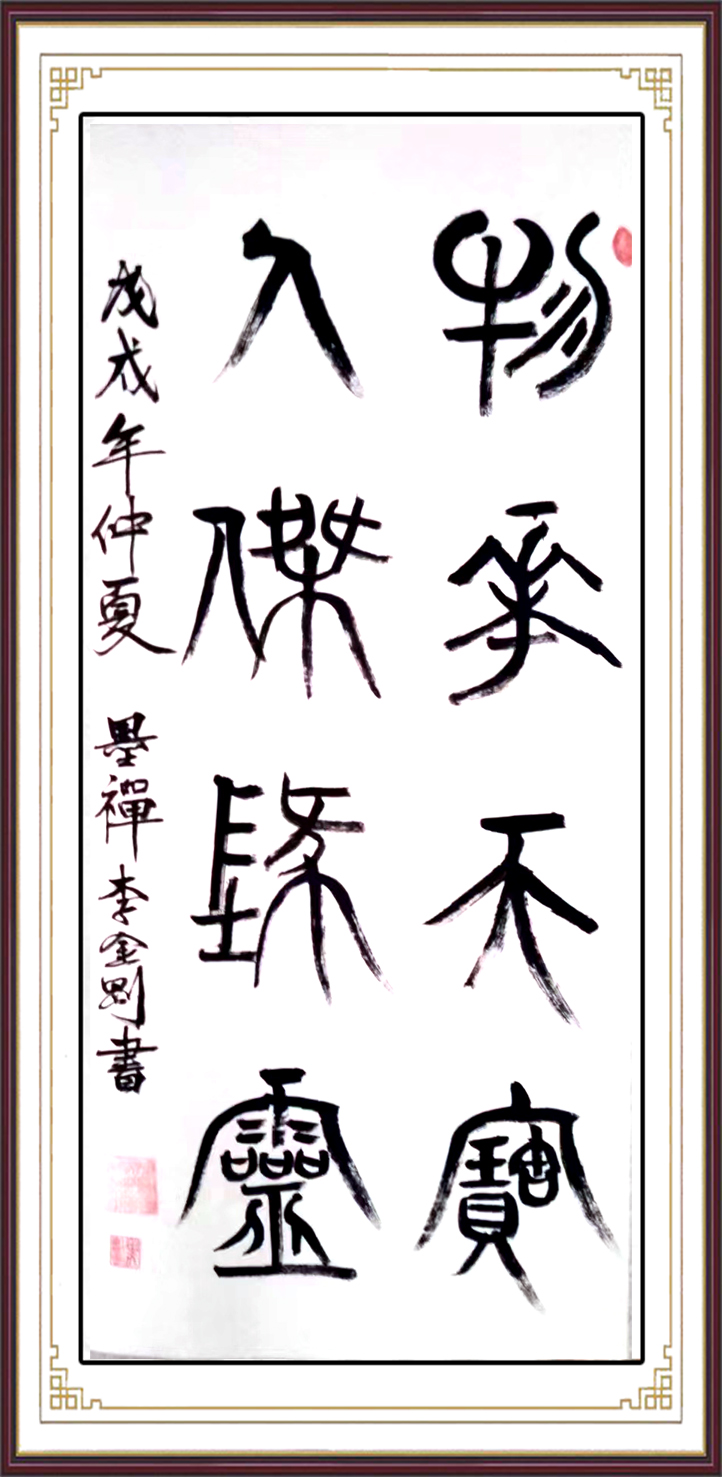 物華天寶
人傑墬靈
戊戌年仲夏 墨禪李金剛書